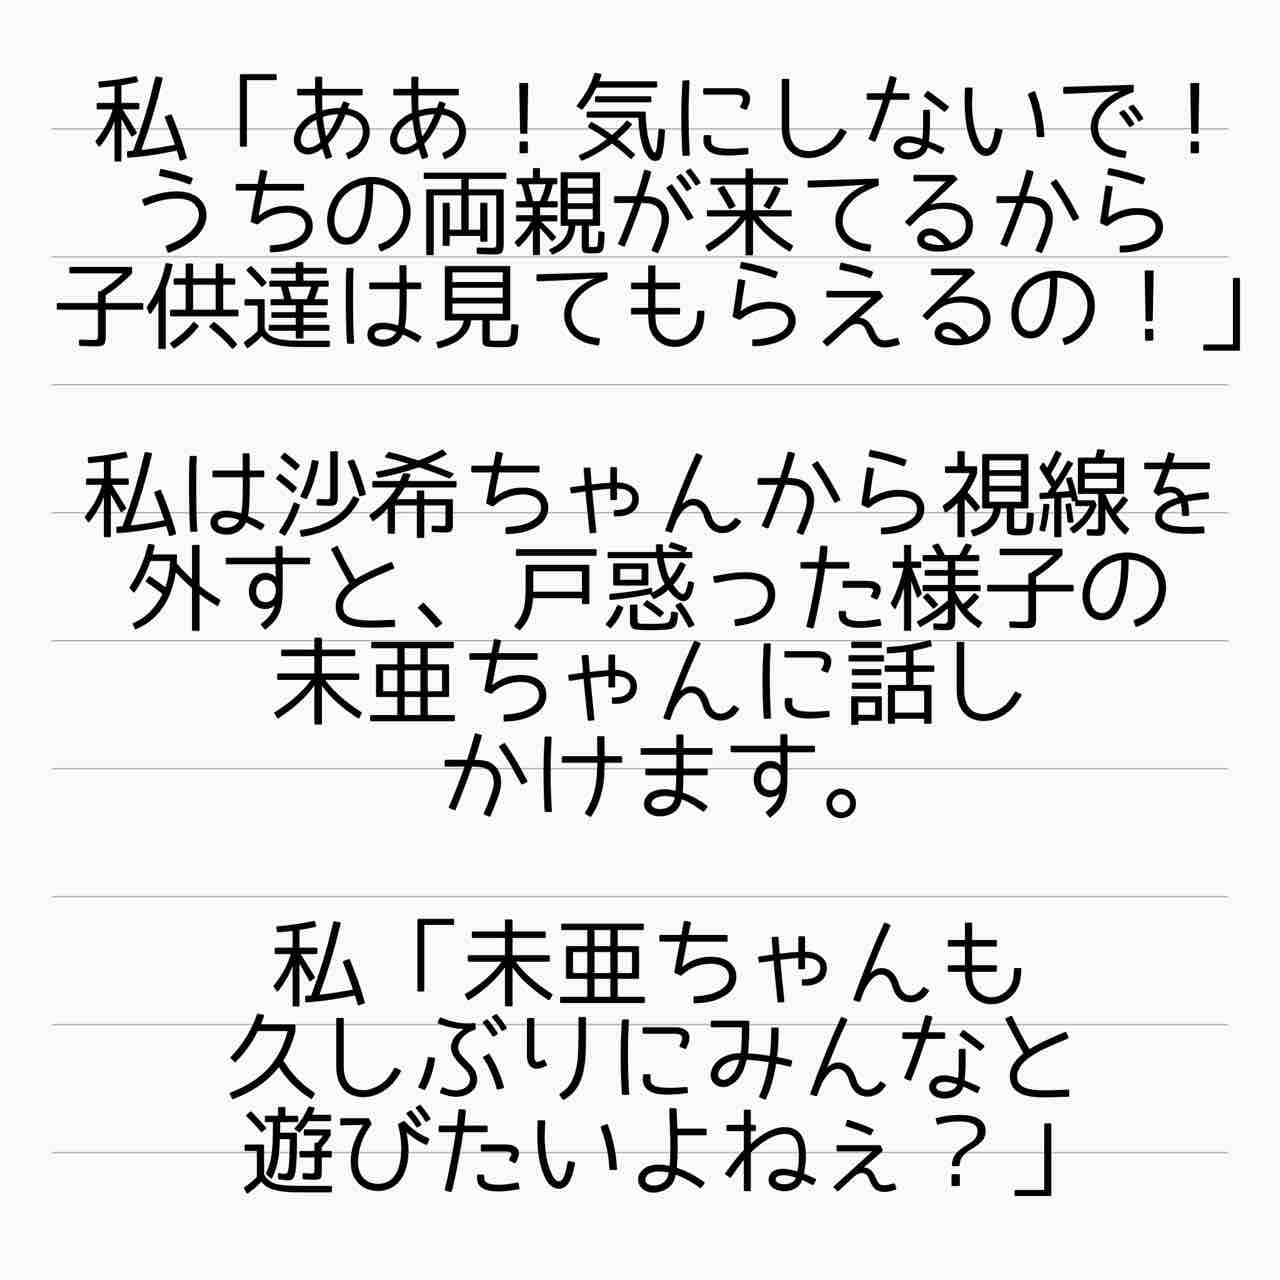 私「ああ！気にしないで！
うちの両親が来てるから
子供達は見てもらえるの！」
私は沙希ちゃんから視線を
外すと、戸惑った様子の
未亜ちゃんに話し
かけます。
私「未亜ちゃんも
久しぶりにみんなと
遊びたいよねぇ？」